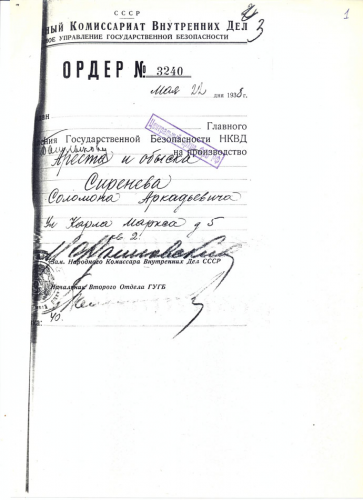 1
СССР
ный Комиссариат Внутренних Дел
ое управление государственной безопасности
ОРДЕР № 3240
Мая 22 дня 1938 г.
Главного
ния Государственной Безопасности НКВД
на производство
Ареста и обыска
Сиренева
Соломона Аркадьевича
Ул Карла Маркса д 5
кв 2
Зам. Народного Комиссара Внутренних Дел СССР
Начальник Второго Отдела ГУГБ